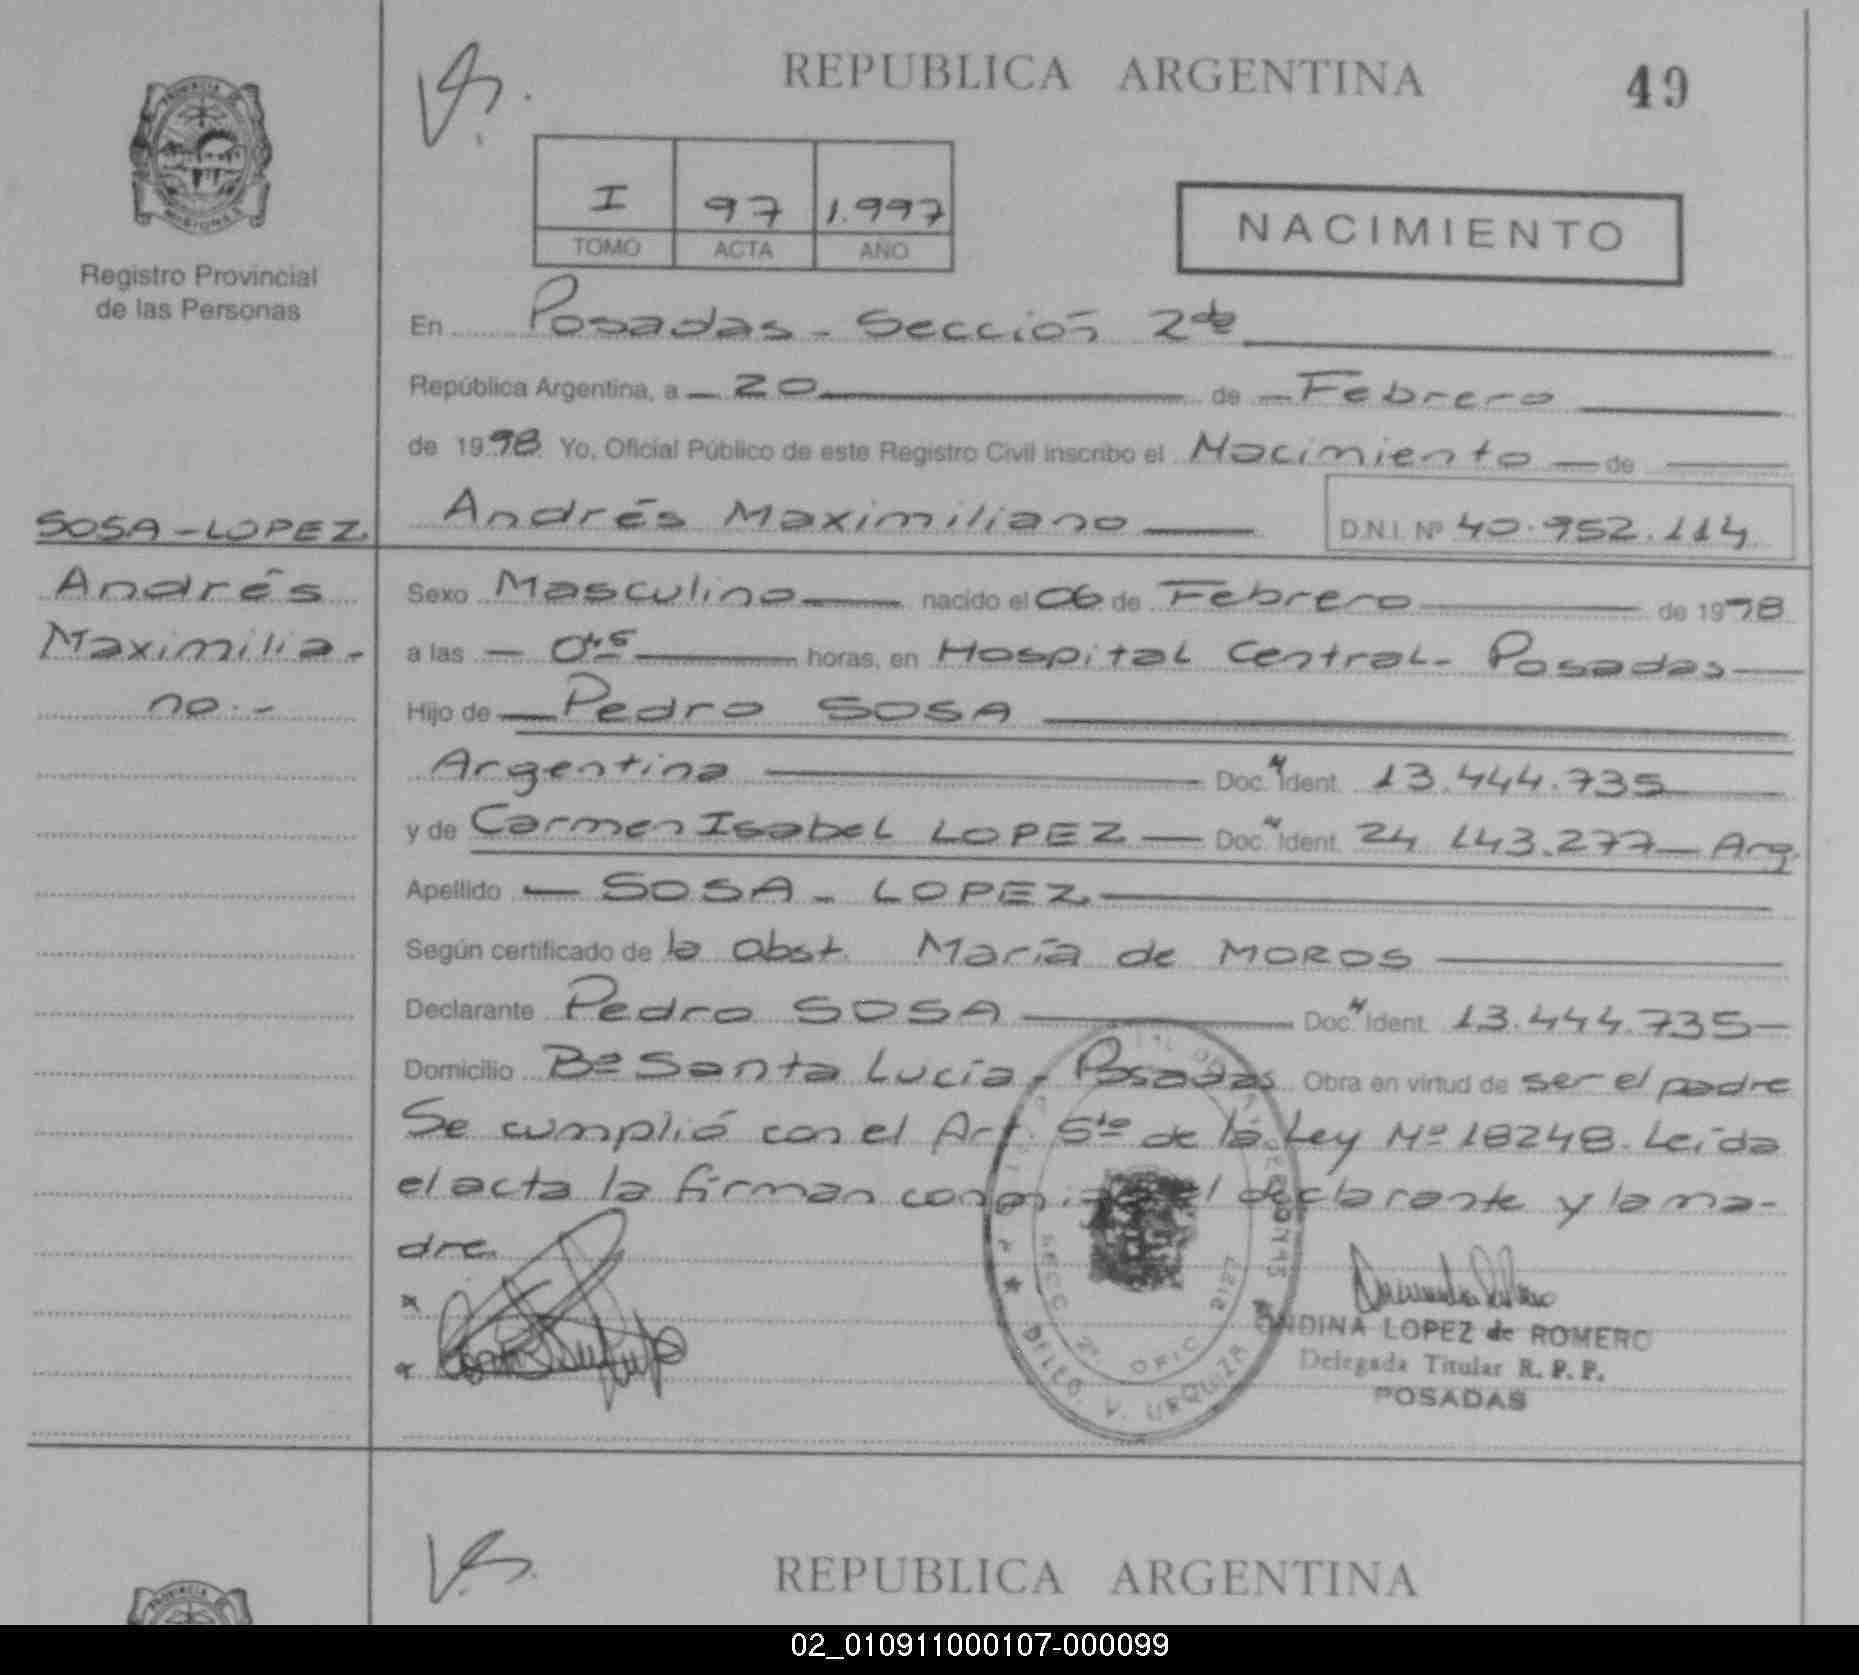 REPUBLICA ARGENTINA
49
PROVINCIA DE
MISIONES
Registro Provincial
de las Personas
I 97 1.997
TOMO ACTA AÑO
NACIMIENTO
En Posadas - Sección 2da
República Argentina, a - 20 de - Febrero
de 1998 Yo, Oficial Público de este Registro Civil inscribo el Nacimiento - de
Andrés Maximiliano D.N.I. Nº 40.952.114
SOSA-LOPEZ
Andrés
Maximilia-
no.-
Sexo Masculino nacido el 06 de Febrero de 1998
a las - 0hs horas, en Hospital Central- Posadas
Hijo de Pedro SOSA
Argentina Doc. Ident. 13.444.735
y de Carmen Isabel LOPEZ - Doc. Ident. 24 143.277 - Arg.
Apellido - SOSA - LOPEZ
Según certificado de la Obst. María de MOROS
Declarante Pedro SOSA Doc. Ident. 13.444.735-
Domicilio Bº Santa Lucía - Posadas Obra en virtud de ser el padre
Se cumplió con el Art. 5to de la Ley Nº 18248. Leída
el acta la firman conmigo el declarante y la ma-
dre.
SECC 2ª. OFIC 2127
DELEG. V. URQUIZA
ONDINA LOPEZ de ROMERO
Delegada Titular R. P. P.
POSADAS
REPUBLICA ARGENTINA
PROVINCIA
02_010911000107-000099